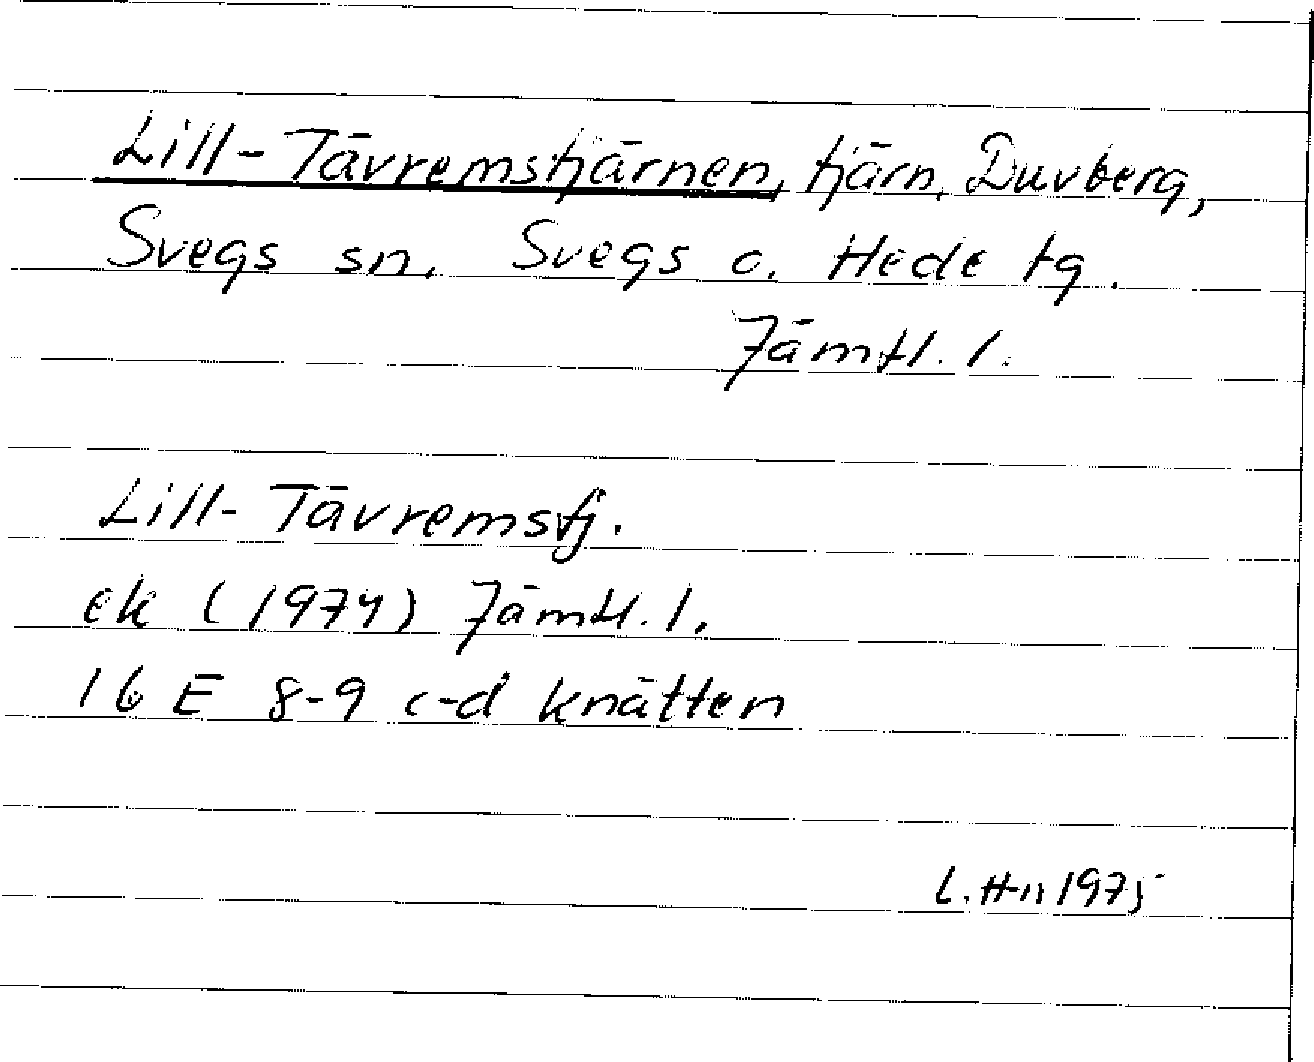 Lill-Tävremstjärnen, tjärn, Duvberg,
Svegs sn. Svegs o. Hede tg.
Jämtl. l.
Lill-Tävremstj.
ek (1974) Jämtl. l.
16 E 8-9 c-d Knätten
L. H-n 1975